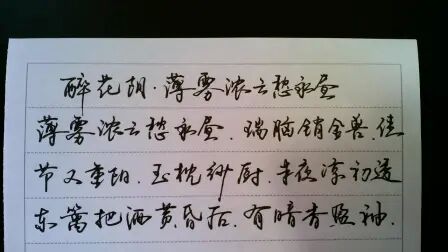 醉花阴·薄雾浓云愁永昼
薄雾浓云愁永昼.瑞脑销金兽.佳
节又重阳.玉枕纱厨.半夜凉初透
东篱把酒黄昏后.有暗香盈袖.